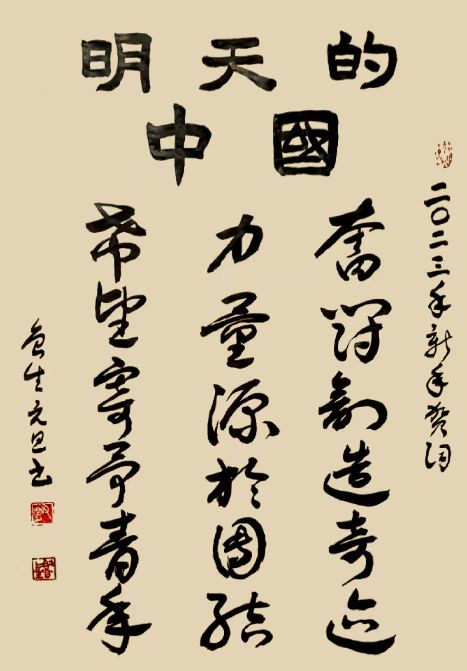 明天的
中國
奮鬥創造奇迹
力量源於團結
希望寄予青年
二〇二三年新年贺词
生元旦书